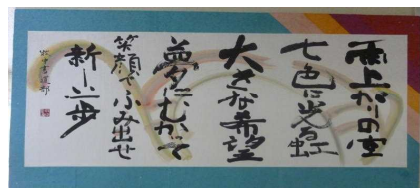 雨上がりの空
七色に光る虹
大きな希望
夢にむかって
笑顔でふみ出せ
新しい一歩